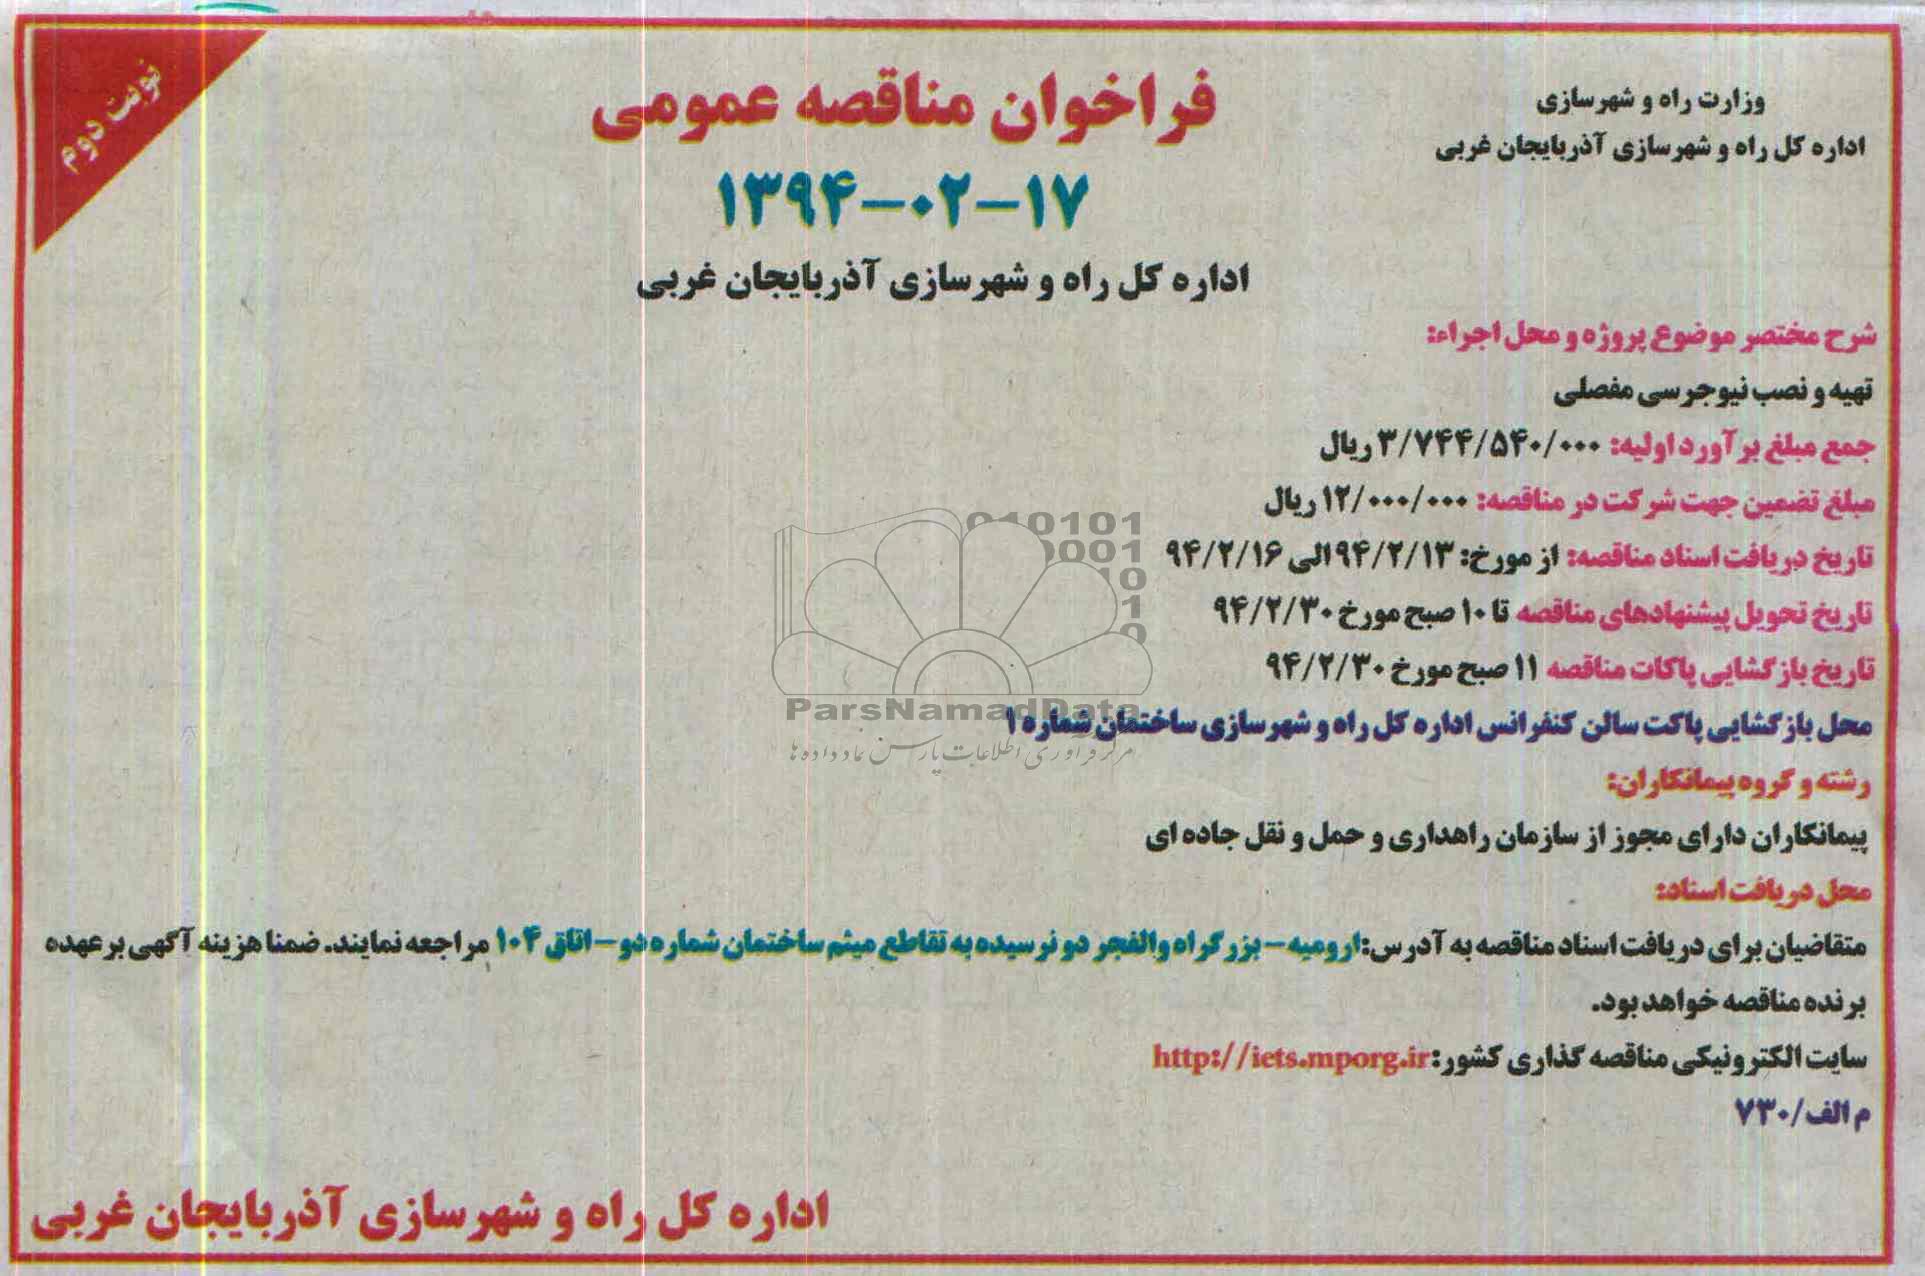 وزارت راه و شهرسازی
اداره کل راه و شهرسازی آذربایجان غربی
نوبت دوم
فراخوان مناقصه عمومی
۱۳۹۴-۰۲-۱۷
اداره کل راه و شهرسازی آذربایجان غربی
شرح مختصر موضوع پروژه و محل اجراء:
تهیه و نصب نیوجرسی مفصلی
جمع مبلغ برآورد اولیه: ۳/۷۴۴/۵۴۰/۰۰۰ ریال
مبلغ تضمین جهت شرکت در مناقصه: ۱۲/۰۰۰/۰۰۰ ریال
تاریخ دریافت اسناد مناقصه: از مورخ: ۹۴/۲/۱۳ الی ۹۴/۲/۱۶
تاریخ تحویل پیشنهادهای مناقصه تا ۱۰ صبح مورخ ۹۴/۲/۳۰
تاریخ بازگشایی پاکات مناقصه ۱۱ صبح مورخ ۹۴/۲/۳۰
محل بازگشایی پاکت سالن کنفرانس اداره کل راه و شهرسازی ساختمان شماره ۱
رشته و گروه پیمانکاران:
پیمانکاران دارای مجوز از سازمان راهداری و حمل و نقل جاده ای
محل دریافت اسناد:
متقاضیان برای دریافت اسناد مناقصه به آدرس: ارومیه – بزرگراه والفجر دو نرسیده به تقاطع میثم ساختمان شماره دو – اتاق ۱۰۴ مراجعه نمایند. ضمنا هزینه آگهی بر عهده
برنده مناقصه خواهد بود.
سایت الکترونیکی مناقصه گذاری کشور: http://iets.mporg.ir
م الف/۷۳۰
اداره کل راه و شهرسازی آذربایجان غربی
010101
0001
10
10
0
ParsNamadData
مرکز فرآوری اطلاعات پارس نماد داده ها